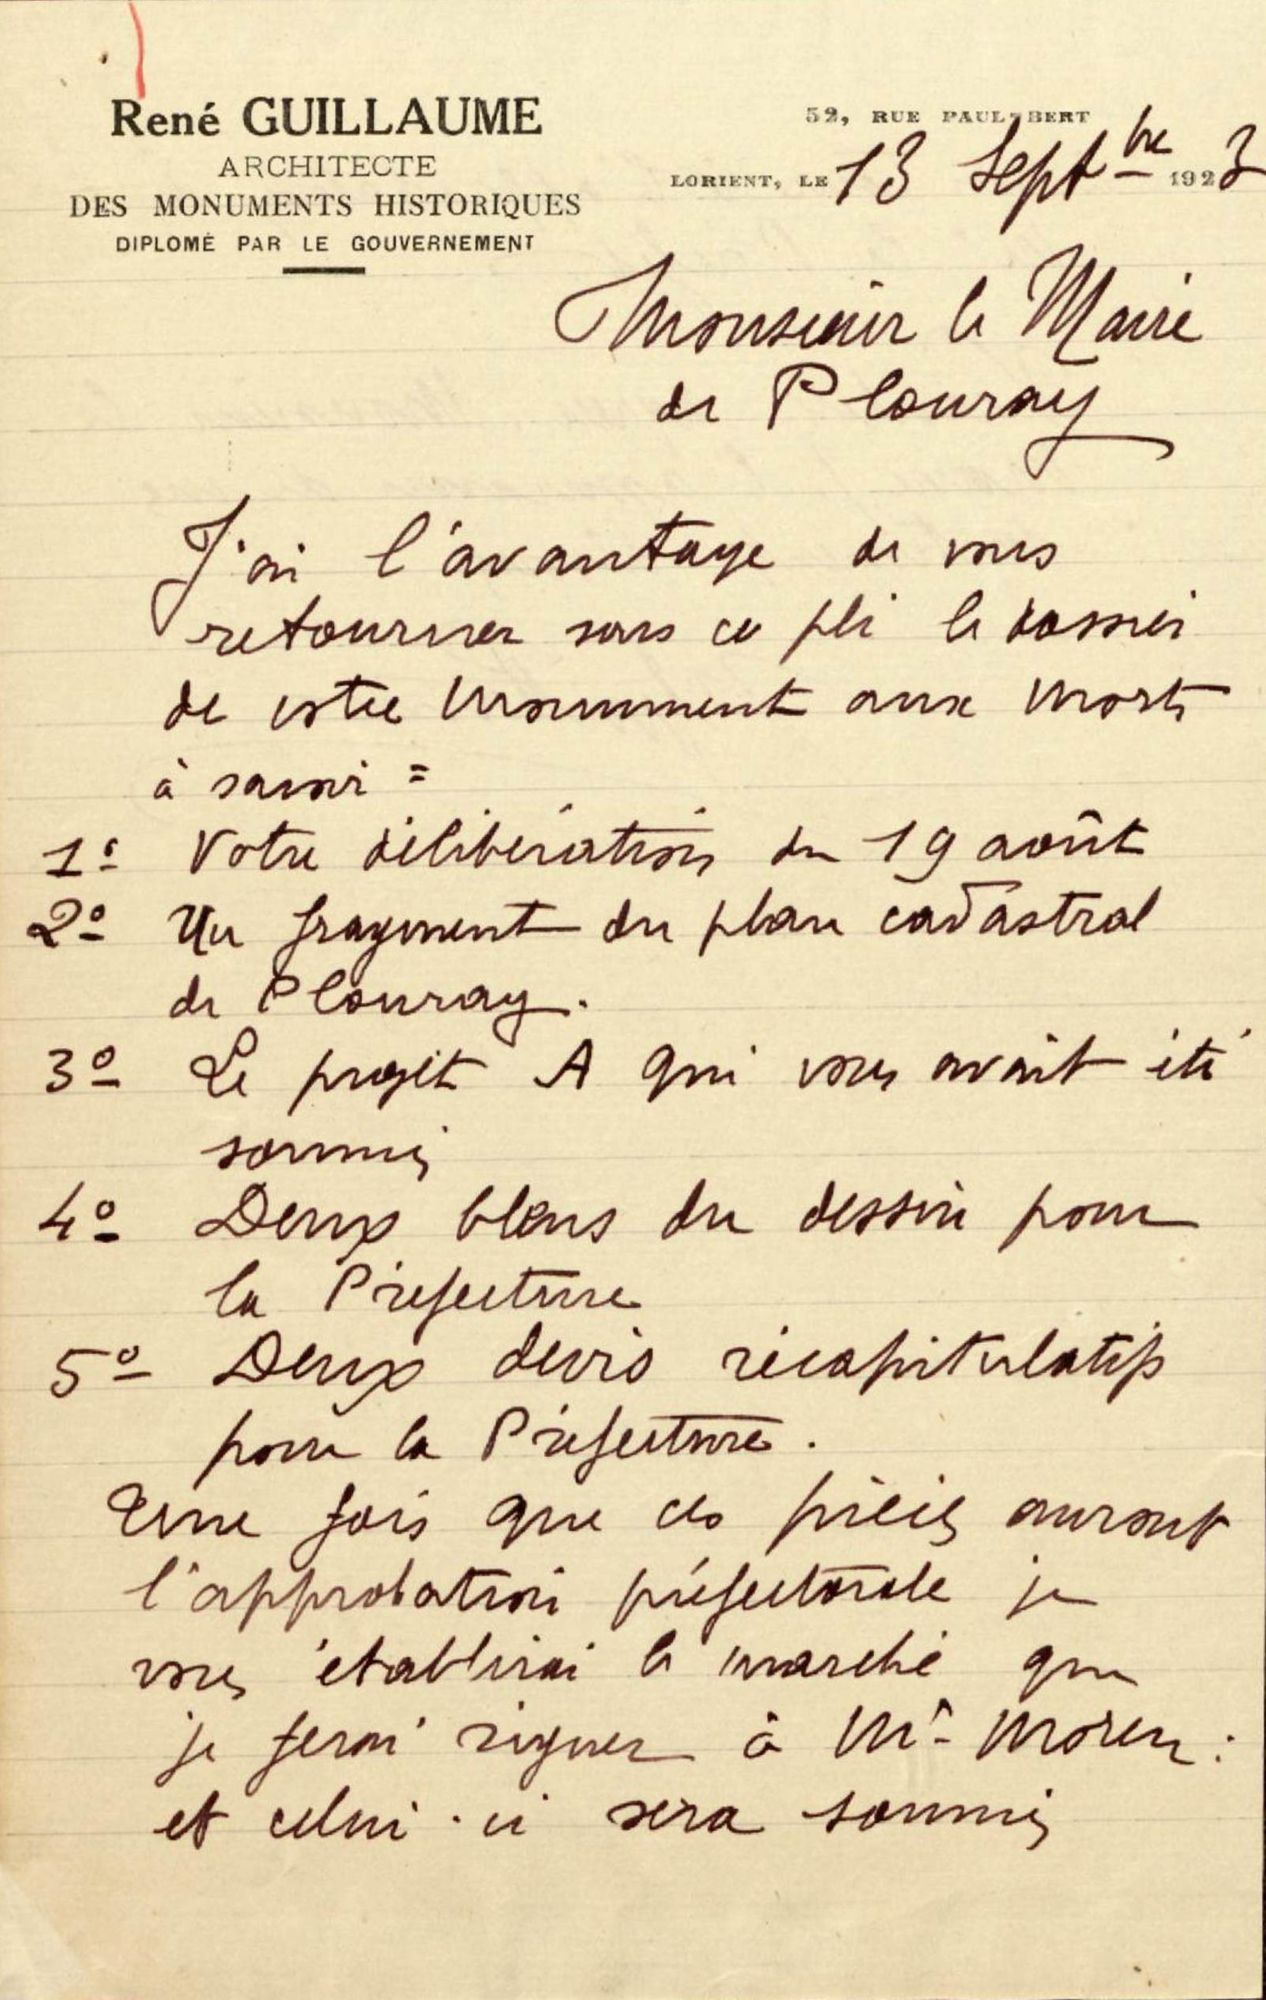 René GUILLAUME
ARCHITECTE
DES MONUMENTS HISTORIQUES
DIPLOMÉ PAR LE GOUVERNEMENT
52, RUE PAUL-BERT
LORIENT, LE 13 Septbre 1923
Monsieur le Maire
de Plouray
J'ai l'avantage de vous
retourner sous ce pli le dossier
de votre Monument aux Morts
à savoir =
1º Votre délibération du 19 août
2º Un fragment du plan cadastral
de Plouray.
3º Le projet A qui vous avait été
soumis
4º Deux bleus du dessin pour
la Préfecture
5º Deux devis récapitulatifs
pour la Préfecture.
Une fois que ces pièces auront
l'approbation préfectorale je
vous établirai le marché que
je ferai signer à Mr
et celui-ci sera soumis